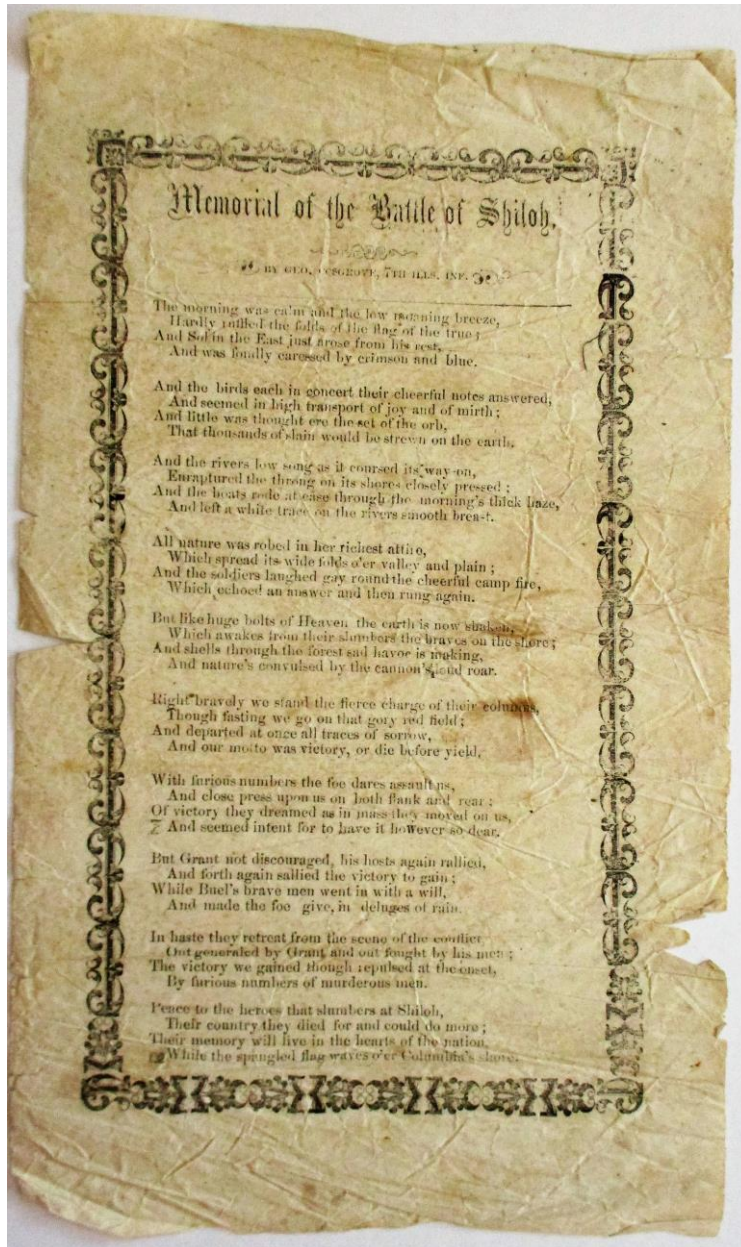 Memorial of the Battle of Shiloh.
BY GEO. COSGROVE, 7TH ILLS. INF.
The morning was calm and the low moaning breeze,
Hardly ruffled the folds of the flag of the true;
And Sol in the East just arose from his rest,
And was fondly caressed by crimson and blue.
And the birds each in concert their cheerful notes answered,
And seemed in high transport of joy and of mirth;
And little was thought ere the set of the orb,
That thousands of slain would be strewn on the earth.
And the rivers low song as it coursed its way on,
Enraptured the throng on its shores closely pressed;
And the boats rode at ease through the morning's thick haze,
And left a white trace on the rivers smooth breast.
All nature was robed in her richest attire,
Which spread its wide folds o'er valley and plain;
And the soldiers laughed gay round the cheerful camp fire,
Which echoed an answer and then rung again.
But like huge bolts of Heaven the earth is now shaken,
Which awakes from their slumbers the braves on the shore;
And shells through the forest sad havoc is making,
And nature's convulsed by the cannon's loud roar.
Right bravely we stand the fierce charge of their columns,
Though fasting we go on that gory red field;
And departed at once all traces of sorrow,
And our motto was victory, or die before yield.
With furious numbers the foe dares assault us,
And close press upon us on both flank and rear;
Of victory they dreamed as in mass they moved on us,
And seemed intent for to have it however so dear.
But Grant not discouraged, his hosts again rallied,
And forth again sallied the victory to gain;
While Buel's brave men went in with a will,
And made the foe give, in deluges of rain.
In haste they retreat from the scene of the conflict
Out generaled by Grant and out fought by his men;
The victory we gained though repulsed at the onset,
By furious numbers of murderous men.
Peace to the heroes that slumbers at Shiloh,
Their country they died for and could do more;
Their memory will live in the hearts of the nation,
While the spengled flag waves o'er Columbia's shore.